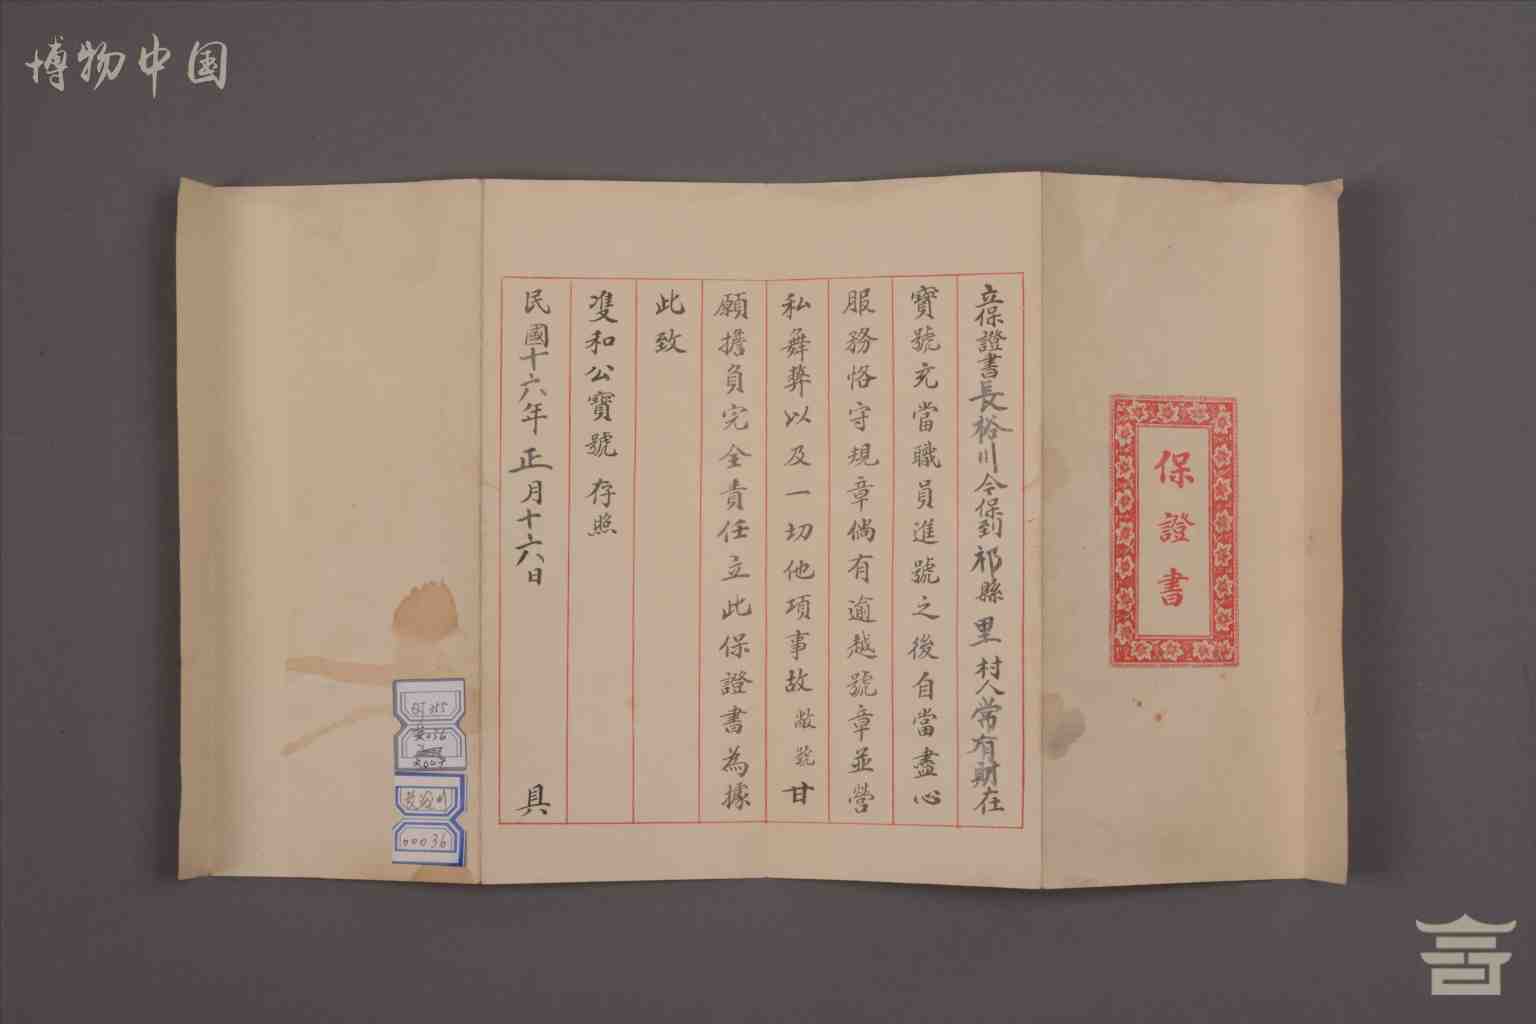 博物中国
保證書
立保證書長裕川今保到祁縣里村人常有財在
寶號充當職員進號之後自當盡心
服務恪守規章倘有逾越號章並營
私舞弊以及一切他項事故敝號甘
願擔負完全責任立此保證書為據
此致
雙和公寶號存照
民國十六年正月十六日具
長裕川
00036